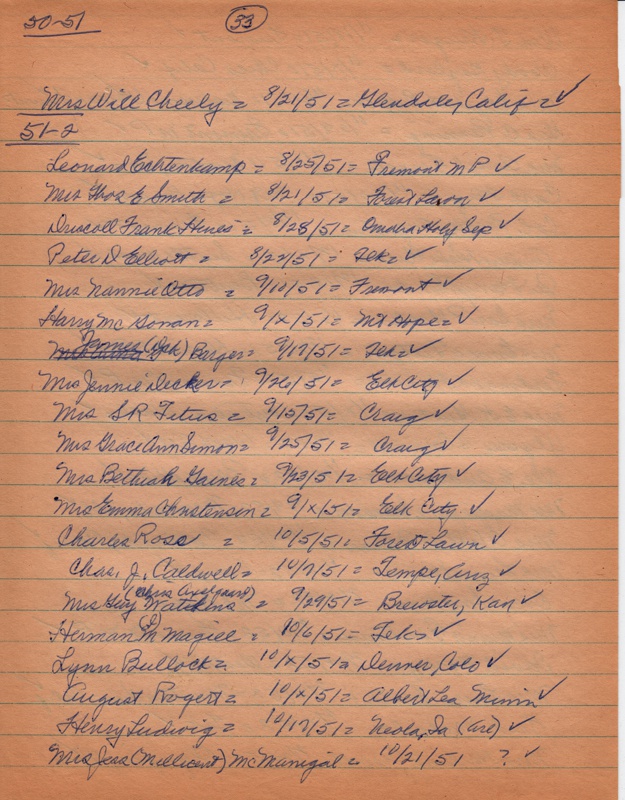 50-51 33
Mrs Will Cheely = 8/21/51 = Glendale, Calif = ✓
51-2
Leonard Echtenkamp = 8/25/51 = Fremont M P ✓
Mrs Thos E Smith = 8/21/51 = Forest Lawn ✓
Driscoll Frank Hines = 8/28/51 = Omaha Holy Sep ✓
Peter D Elliott = 8/22/51 = Tek = ✓
Mrs Nannie Otto = 9/10/51 = Fremont ✓
Harry Mc Gowan = 9/x/51 = Mt Hope = ✓
James ( ) Barger = 9/17/51 = Tek = ✓
Mrs Jennie Decker = 9/26/51 = Elk City ✓
Mrs S R Fetus = 9/15/51 = Craig ✓
Mrs Grace Ann Simon = 9/25/51 = Craig ✓
Mrs Bethiah Gaines = 9/23/51 = Elk City ✓
Mrs Emma Christensen = 9/x/51 = Elk City ✓
Charles Rose = 10/5/51 = Forest Lawn ✓
Chas. J. Caldwell = 10/7/51 = Tempe, Ariz ✓
Mrs Guy Watkins = 9/29/51 = Brewster, Kan ✓
Herman M Magill = 10/6/51 = Tek ✓
Lynn Bullock = 10/x/51 = Denver, Colo ✓
August Rogert = 10/x/51 = Albert Lea Minn ✓
Henry Ludwig = 10/17/51 = Neola, Ia ✓
Mrs Jess (Millicent) McManigal = 10/21/51 ? ✓